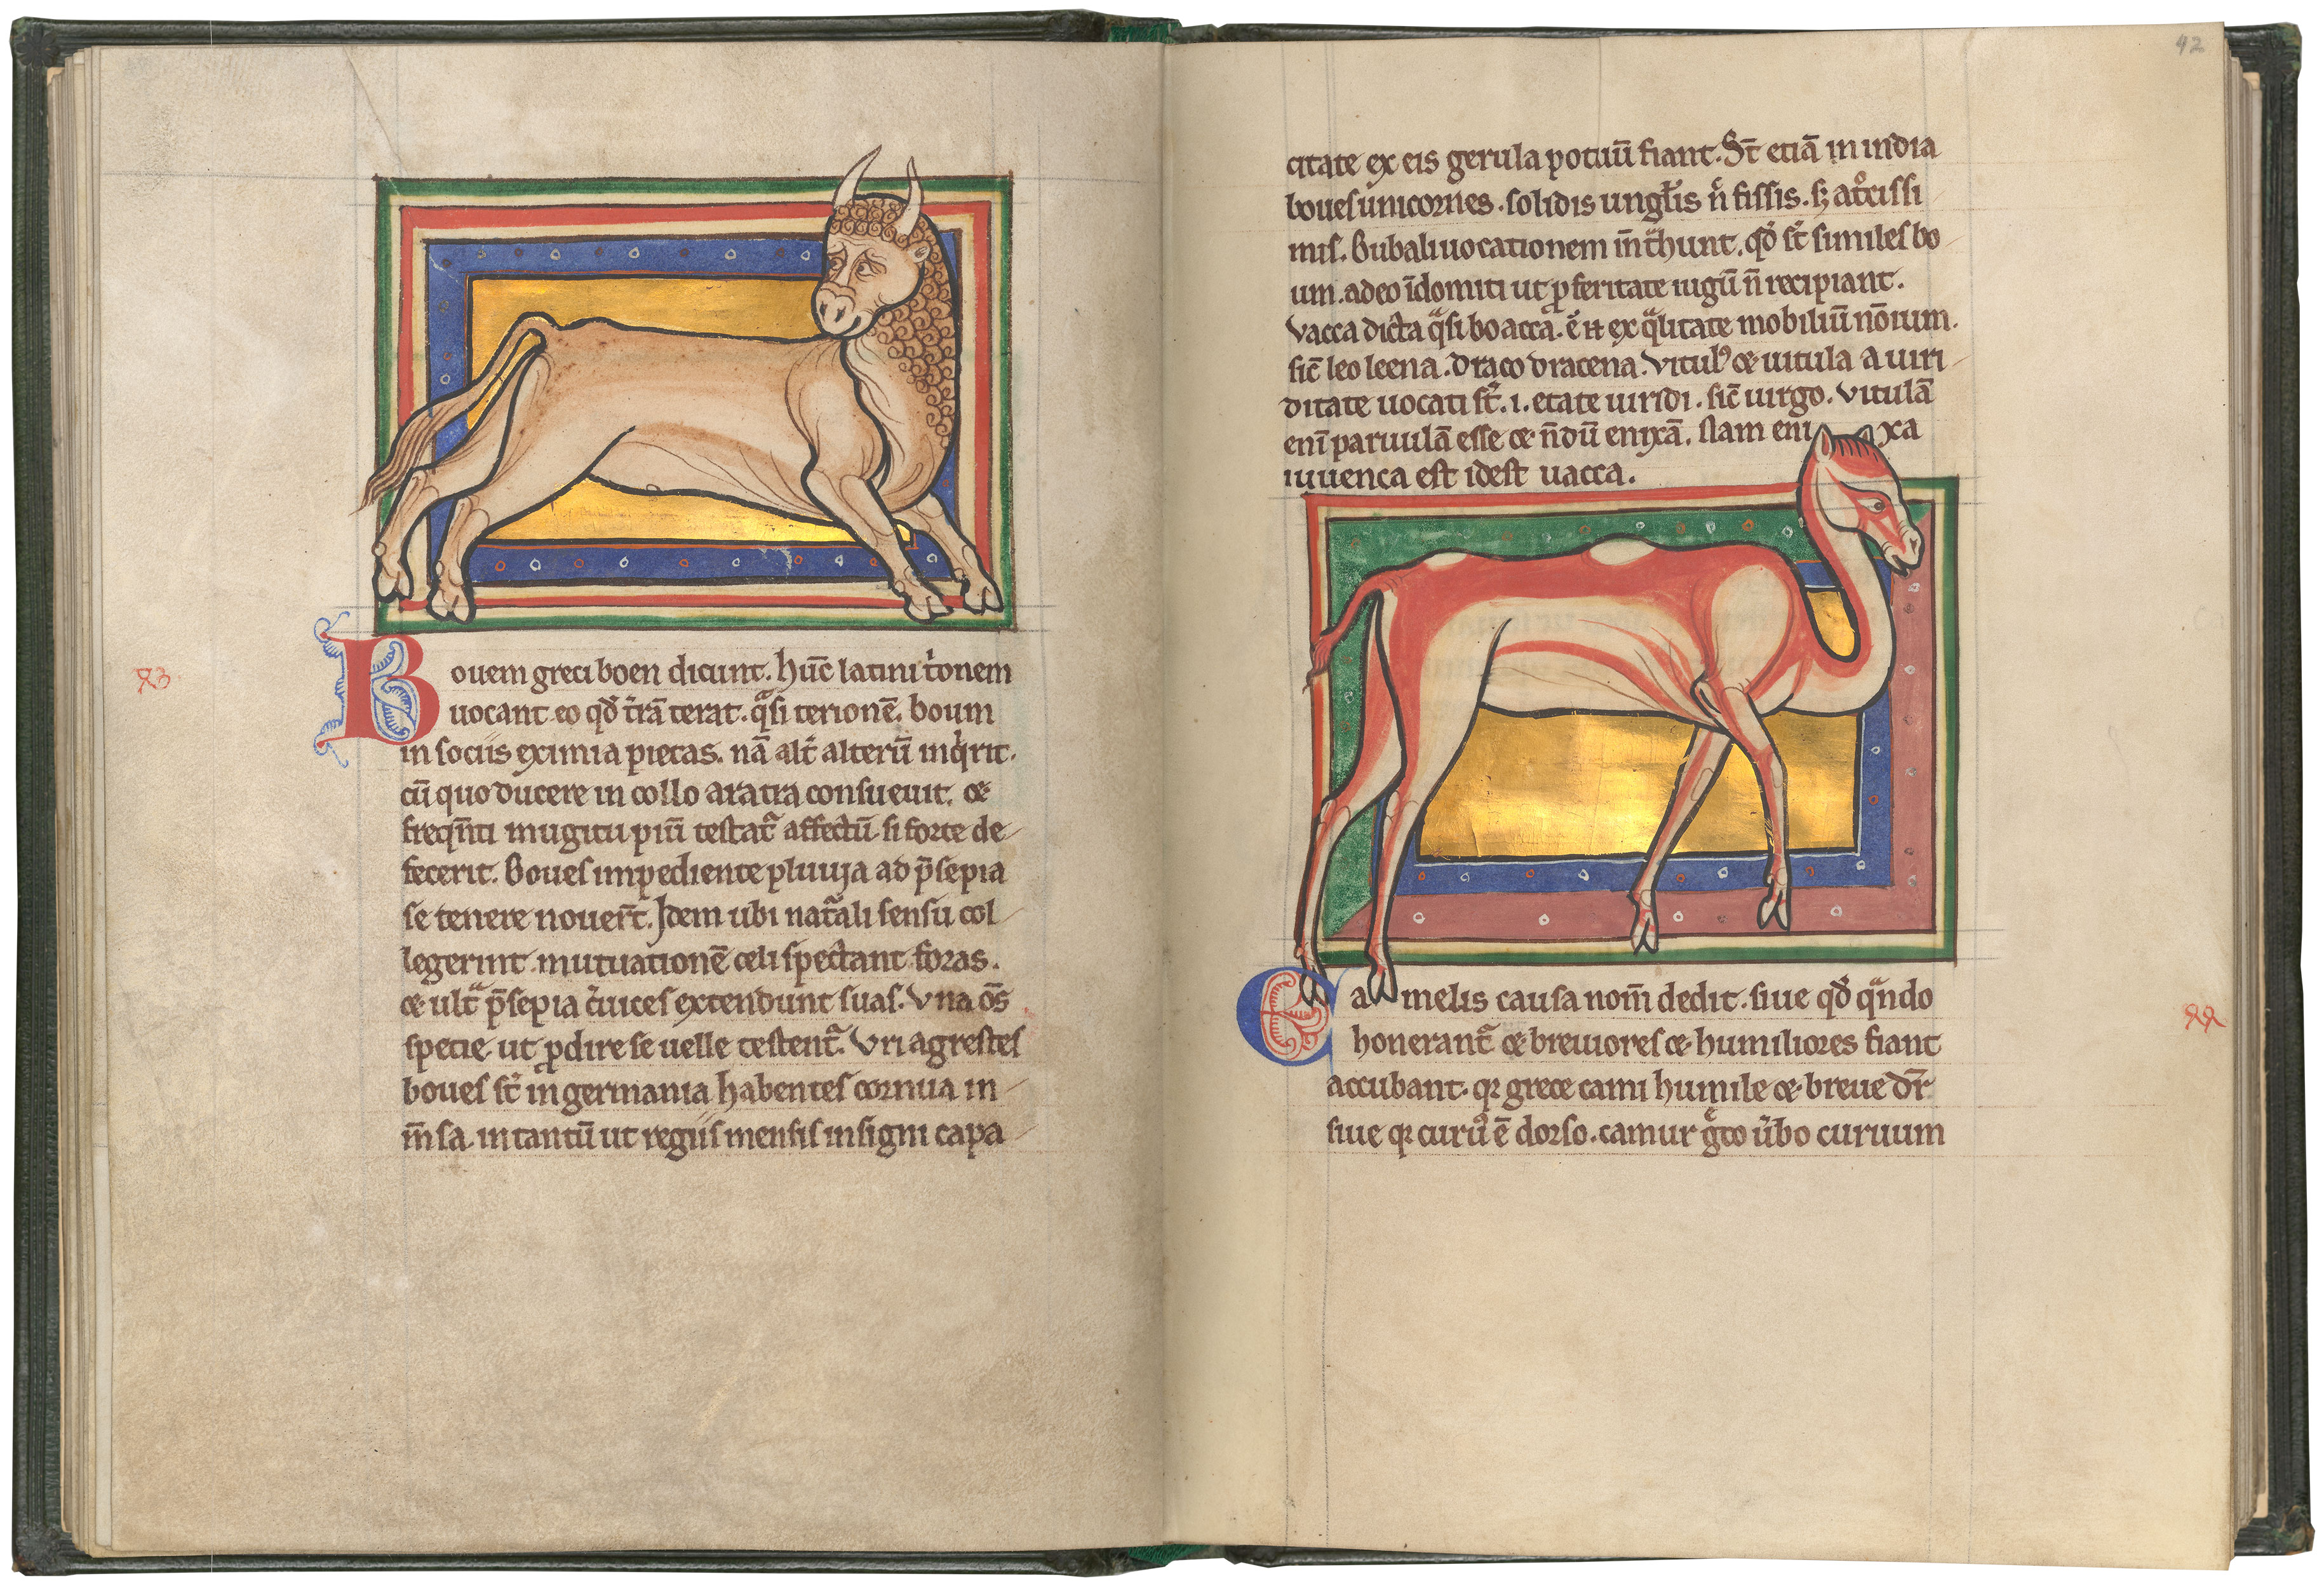 Bouem greci boen dicunt. hūc latini t̓ionem
uocant eo qđ t̓rā terat. qᵃsi terionē. boum
in sociis eximia pietas. nā alt̓ alterū inqⁱrit.
cū quo ducere in collo aratra consueuit. ⁊
freqn̄ti mugitu piū testatᷓ affectū si forte de-
fecerit. Boues impediente pluuia ad p̄sepia
se tenere nouer̄t. Idem ubi natᷓali sensu col-
legerint mutuationē celi spectant foras.
⁊ ultᵃ p̄sepia c̓uices extendunt suas. Vna om̄s
specie ut ꝓdire se uelle testentᷓ. Vri agrestes
boues st̄ in germania habentes cornua in-
m̄sa intantū ut regiis mensis insigni capa-
42
citate ex eis gerula potuū fiant. St̄ etiā in india
boues unicornes. solidis ungl̄is n̄ fissis. sꝫ at̊cissi-
mis. Bubali uocationem in̄thunt. qđ st̄ similes bo-
um. adeo īdomiti ut ꝓ feritate iugū n̄ recipiant.
Vacca dicta qᵃsi boacca. ē n̄ ex qᵃlitate mobiliū nōium.
sic̄ leo leena. draco dracena. Vitulꝰ ⁊ uitula a uiri-
ditate uocati st̄. i. etate uiridi. sic̄ uirgo. Vitulā
eni̅ paruulā esse ⁊ n̄dū enixā. Nam enixa
iuuenca est idest uacca.
Camelis causa nom̄ dedit. siue qđ qᵃndo
honerantᷓ ⁊ breuiores ⁊ humiliores fiant
accubant. qꝛ grece cami humile ⁊ breue dr̄
siue qꝛ curuꝰ ē dorso. camur gᷓco u̓bo curuum